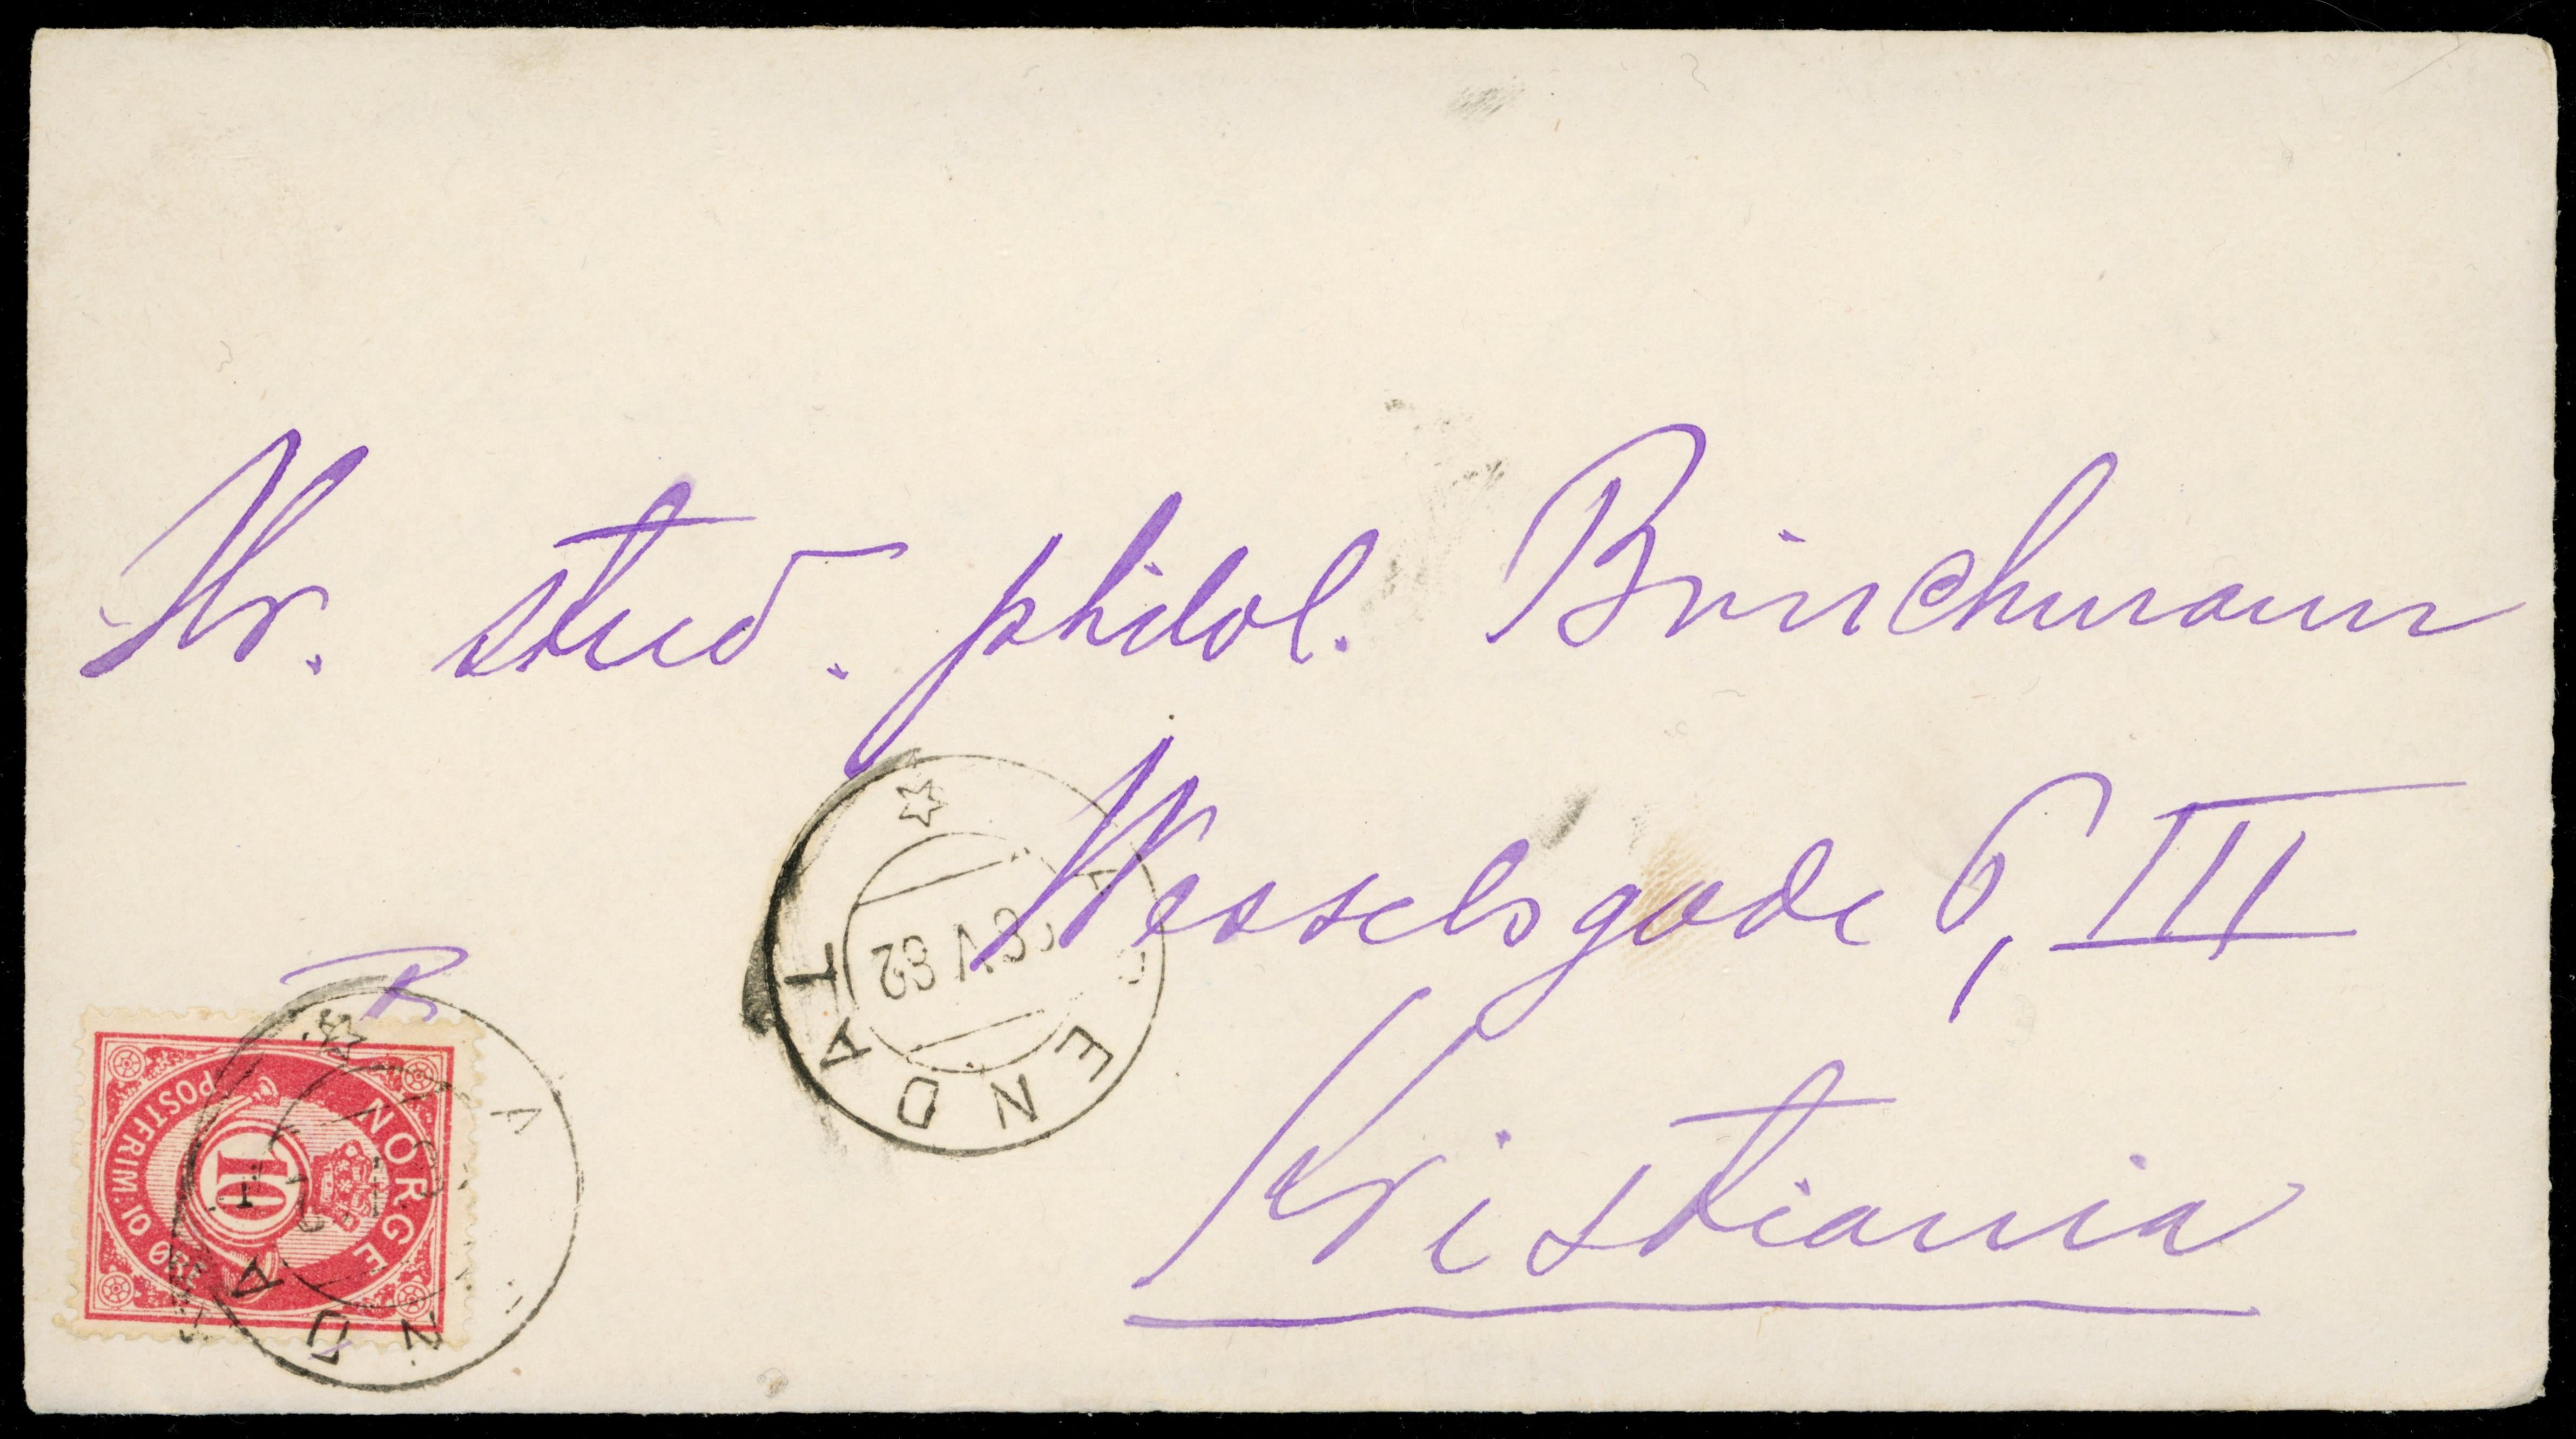 Hr. stud. philol. Brinchmann
Wesselsgade 6, III
Kristiania
NORGE
POSTFRIM. 10 ØRE
10